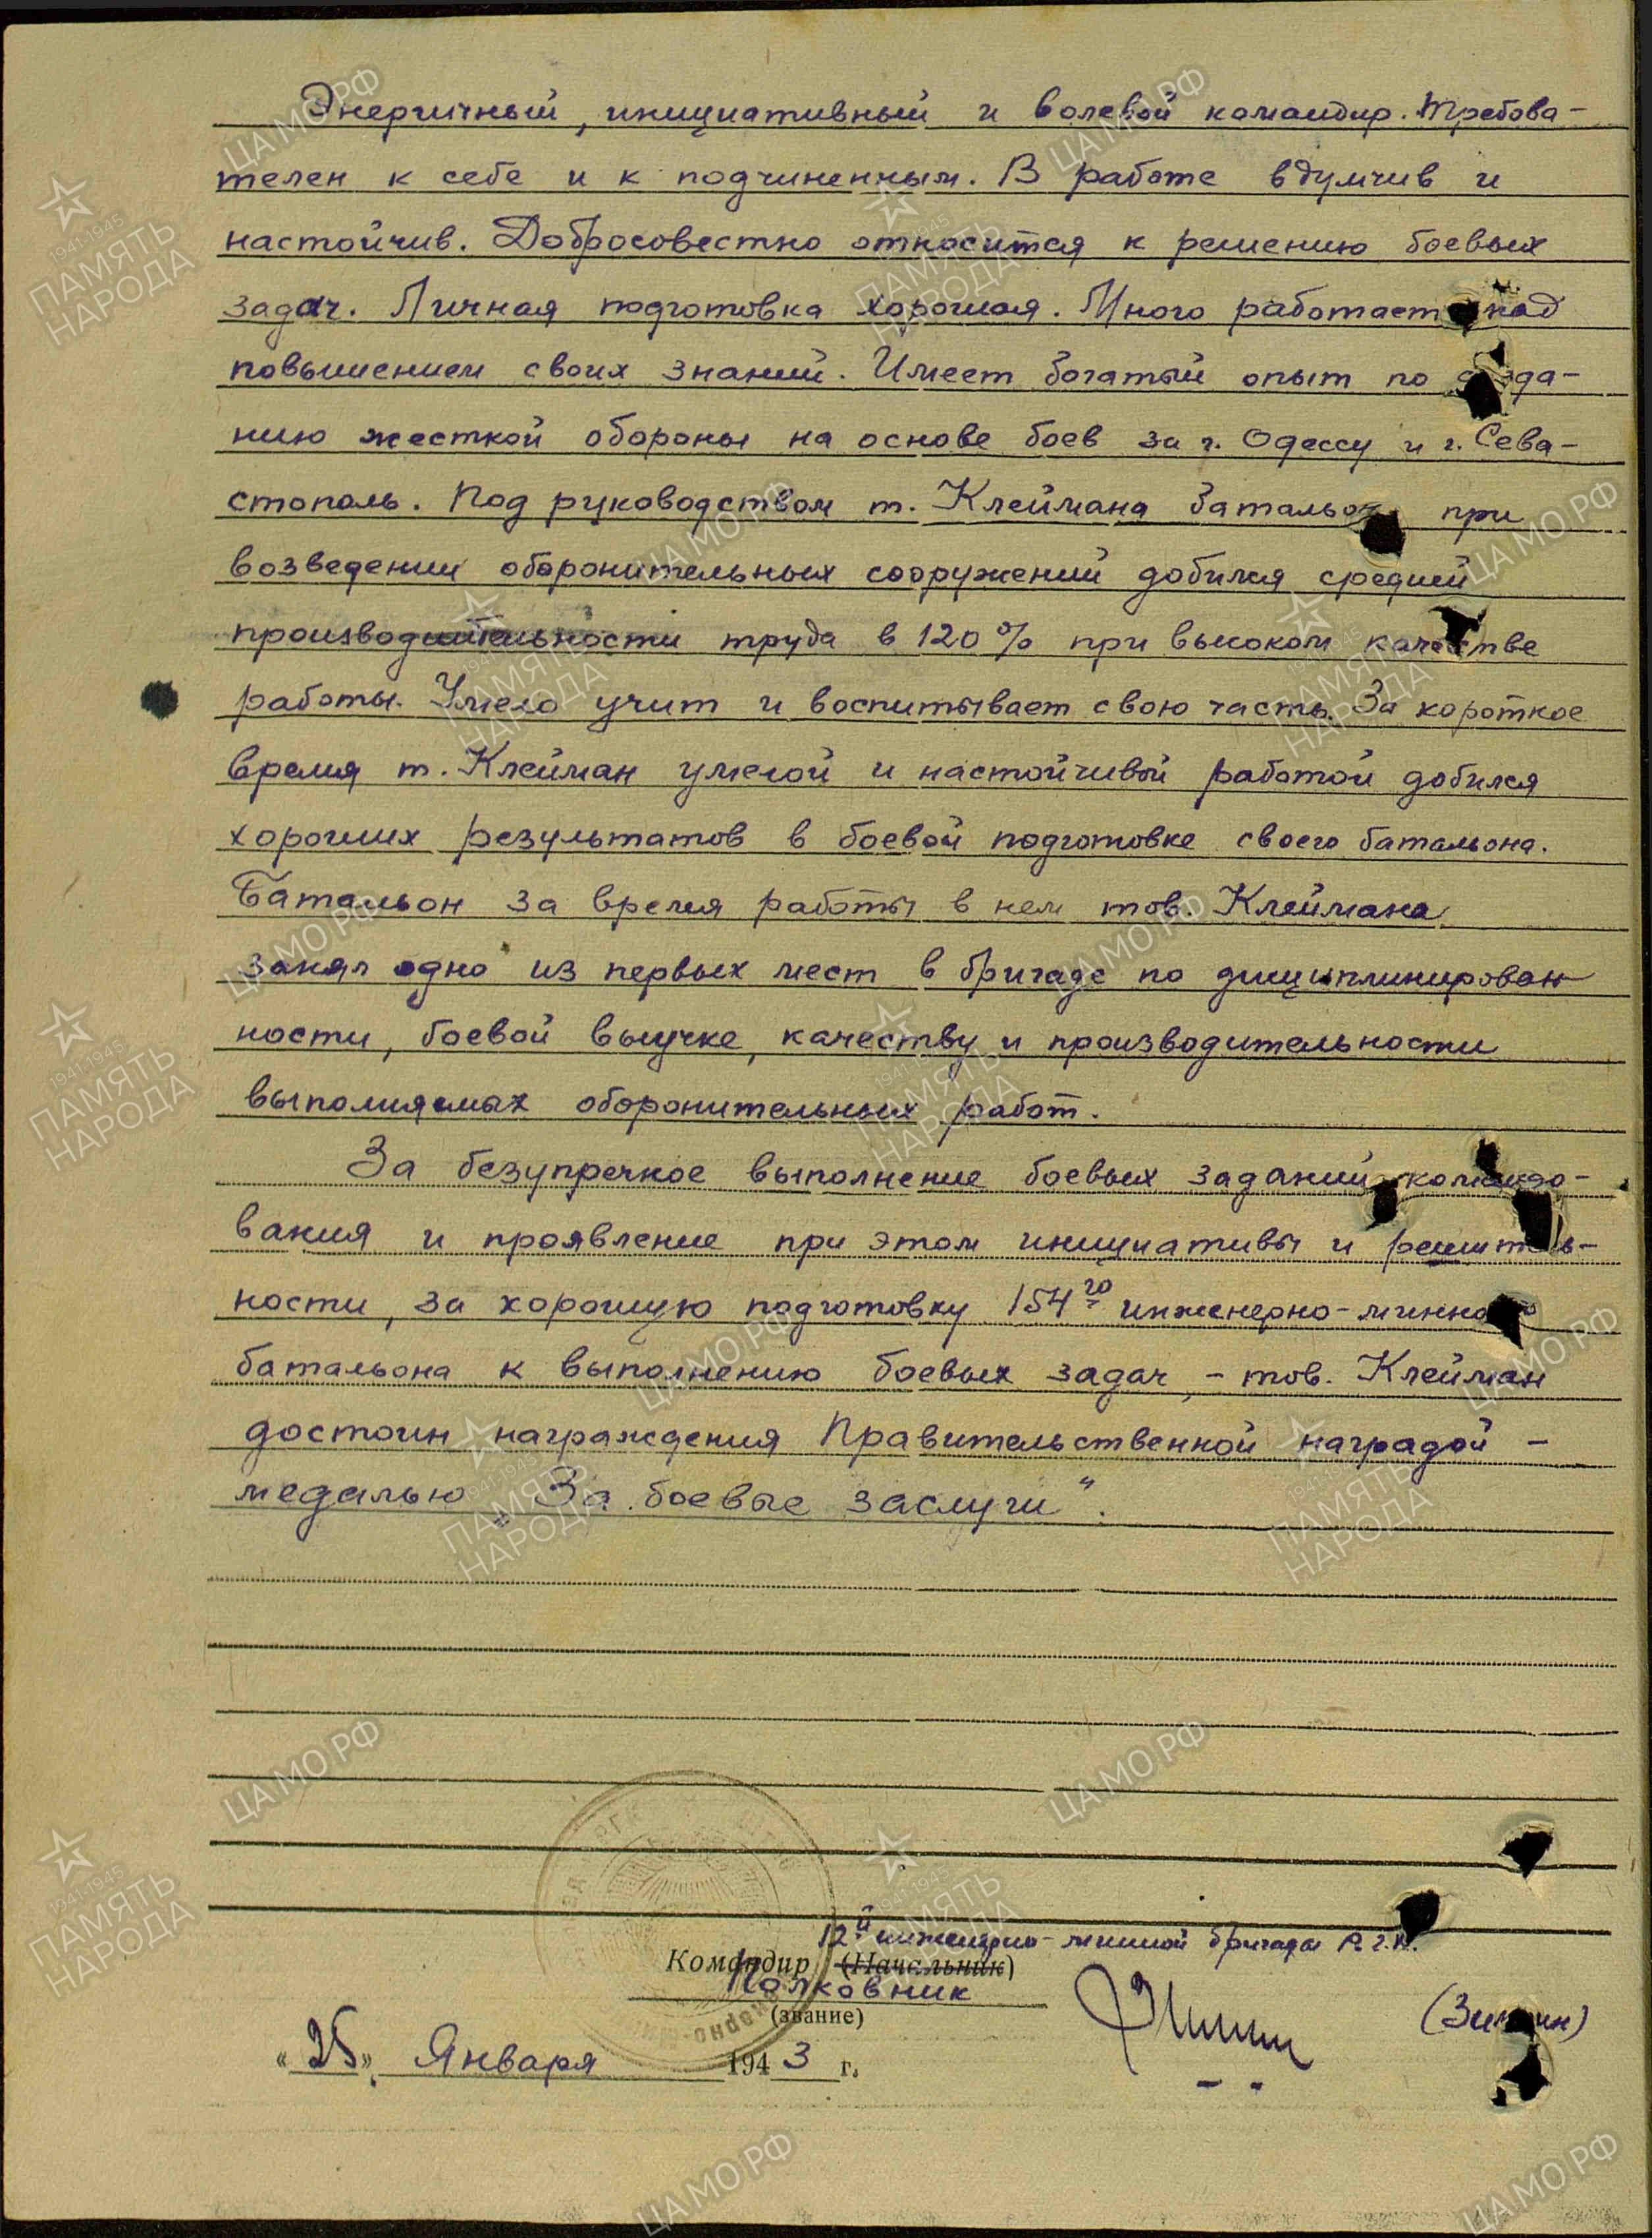 Энергичный, инициативный и волевой командир. Требова-
телен к себе и к подчиненным. В работе вдумчив и
настойчив. Добросовестно относится к решению боевых
задач. Личная подготовка хорошая. Много работает над
повышением своих знаний. Имеет богатый опыт по
нию жесткой обороны на основе боев за г. Одессу и г. Сева-
стополь. Под руководством т. Клеймана батальон при
возведении оборонительных сооружений добился средней
производительности труда в 120% при высоком качестве
работы. Умело учит и воспитывает свою часть. За короткое
время т. Клейман умелой и настойчивой работой добился
хороших результатов в боевой подготовке своего батальона.
Батальон за время работы в нем тов. Клеймана
занял одно из первых мест в бригаде по дисциплинирован
ности, боевой выучке, качеству и производительности
выполняемых оборонительных работ.
За безупречное выполнение боевых заданий командо-
вания и проявление при этом инициативы и решитель-
ности, за хорошую подготовку 154го инженерно-минного
батальона к выполнению боевых задач, - тов. Клейман
достоин награждения Правительственной наградой -
медалью „За боевые заслуги".
12й инженерно-минной бригады Р.Г.К.
Командир (Начальник)
Полковник
(звание)
«25» Января 1943 г.
ЦАМО РФ
1941-1945
ПАМЯТЬ
НАРОДА